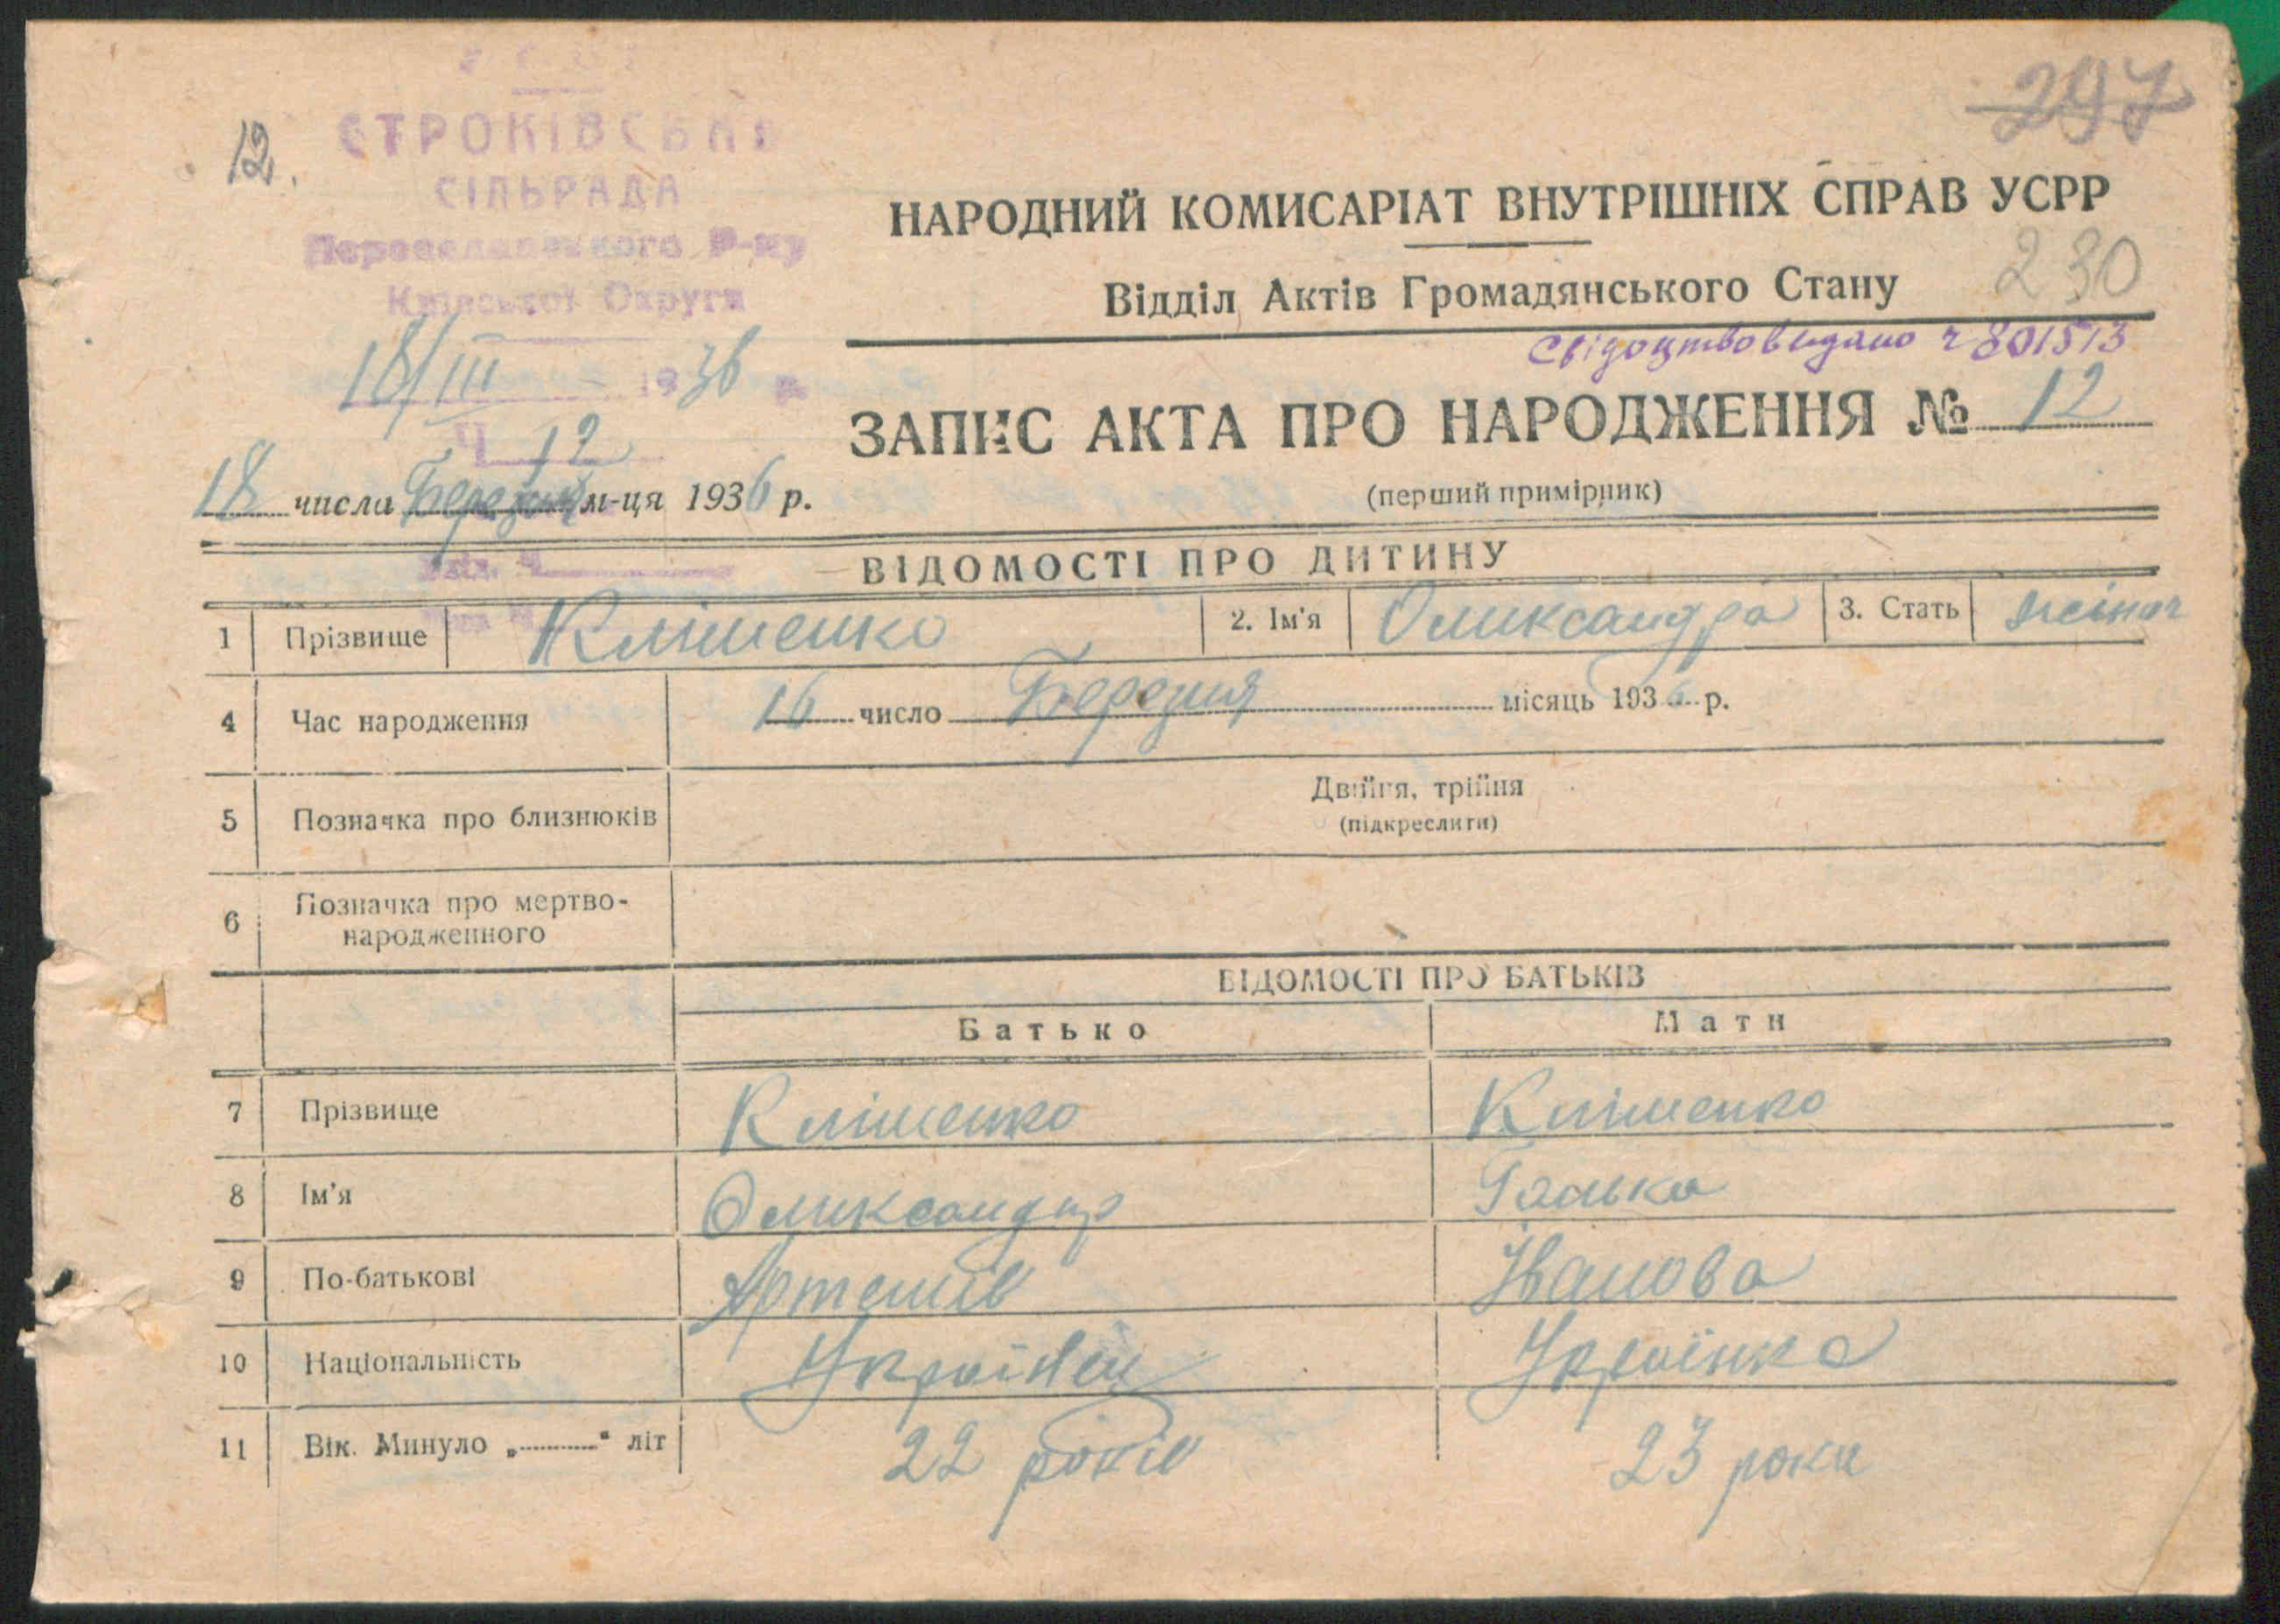 297
12.
СТРОКІВСЬКА
СІЛЬРАДА
Переяславського Р-ну
Київської Округи
18/III 1936 р.
Ч 12
НАРОДНИЙ КОМИСАРІАТ ВНУТРІШНІХ СПРАВ УСРР
Відділ Актів Громадянського Стану
230
Свідоцтво видано ч 801513
ЗАПИС АКТА ПРО НАРОДЖЕННЯ № 12
(перший примірник)
18 числа Березня м-ця 1936 р.
ВІДОМОСТІ ПРО ДИТИНУ
1 Прізвище Кліменко 2. Ім'я Олександра 3. Стать жіноч
4 Час народження 16 число Березня місяць 1936 р.
5 Позначка про близнюків Двійня, трійня
(підкреслити)
6 Позначка про мертво-
народженного
ВІДОМОСТІ ПРО БАТЬКІВ
Батько Мати
7 Прізвище Кліменко Кліменко
8 Ім'я Олександр Галька
9 По-батькові Артемів Іванова
10 Національність Українец Українка
11 Вік. Минуло „ “ літ 22 років 23 роки